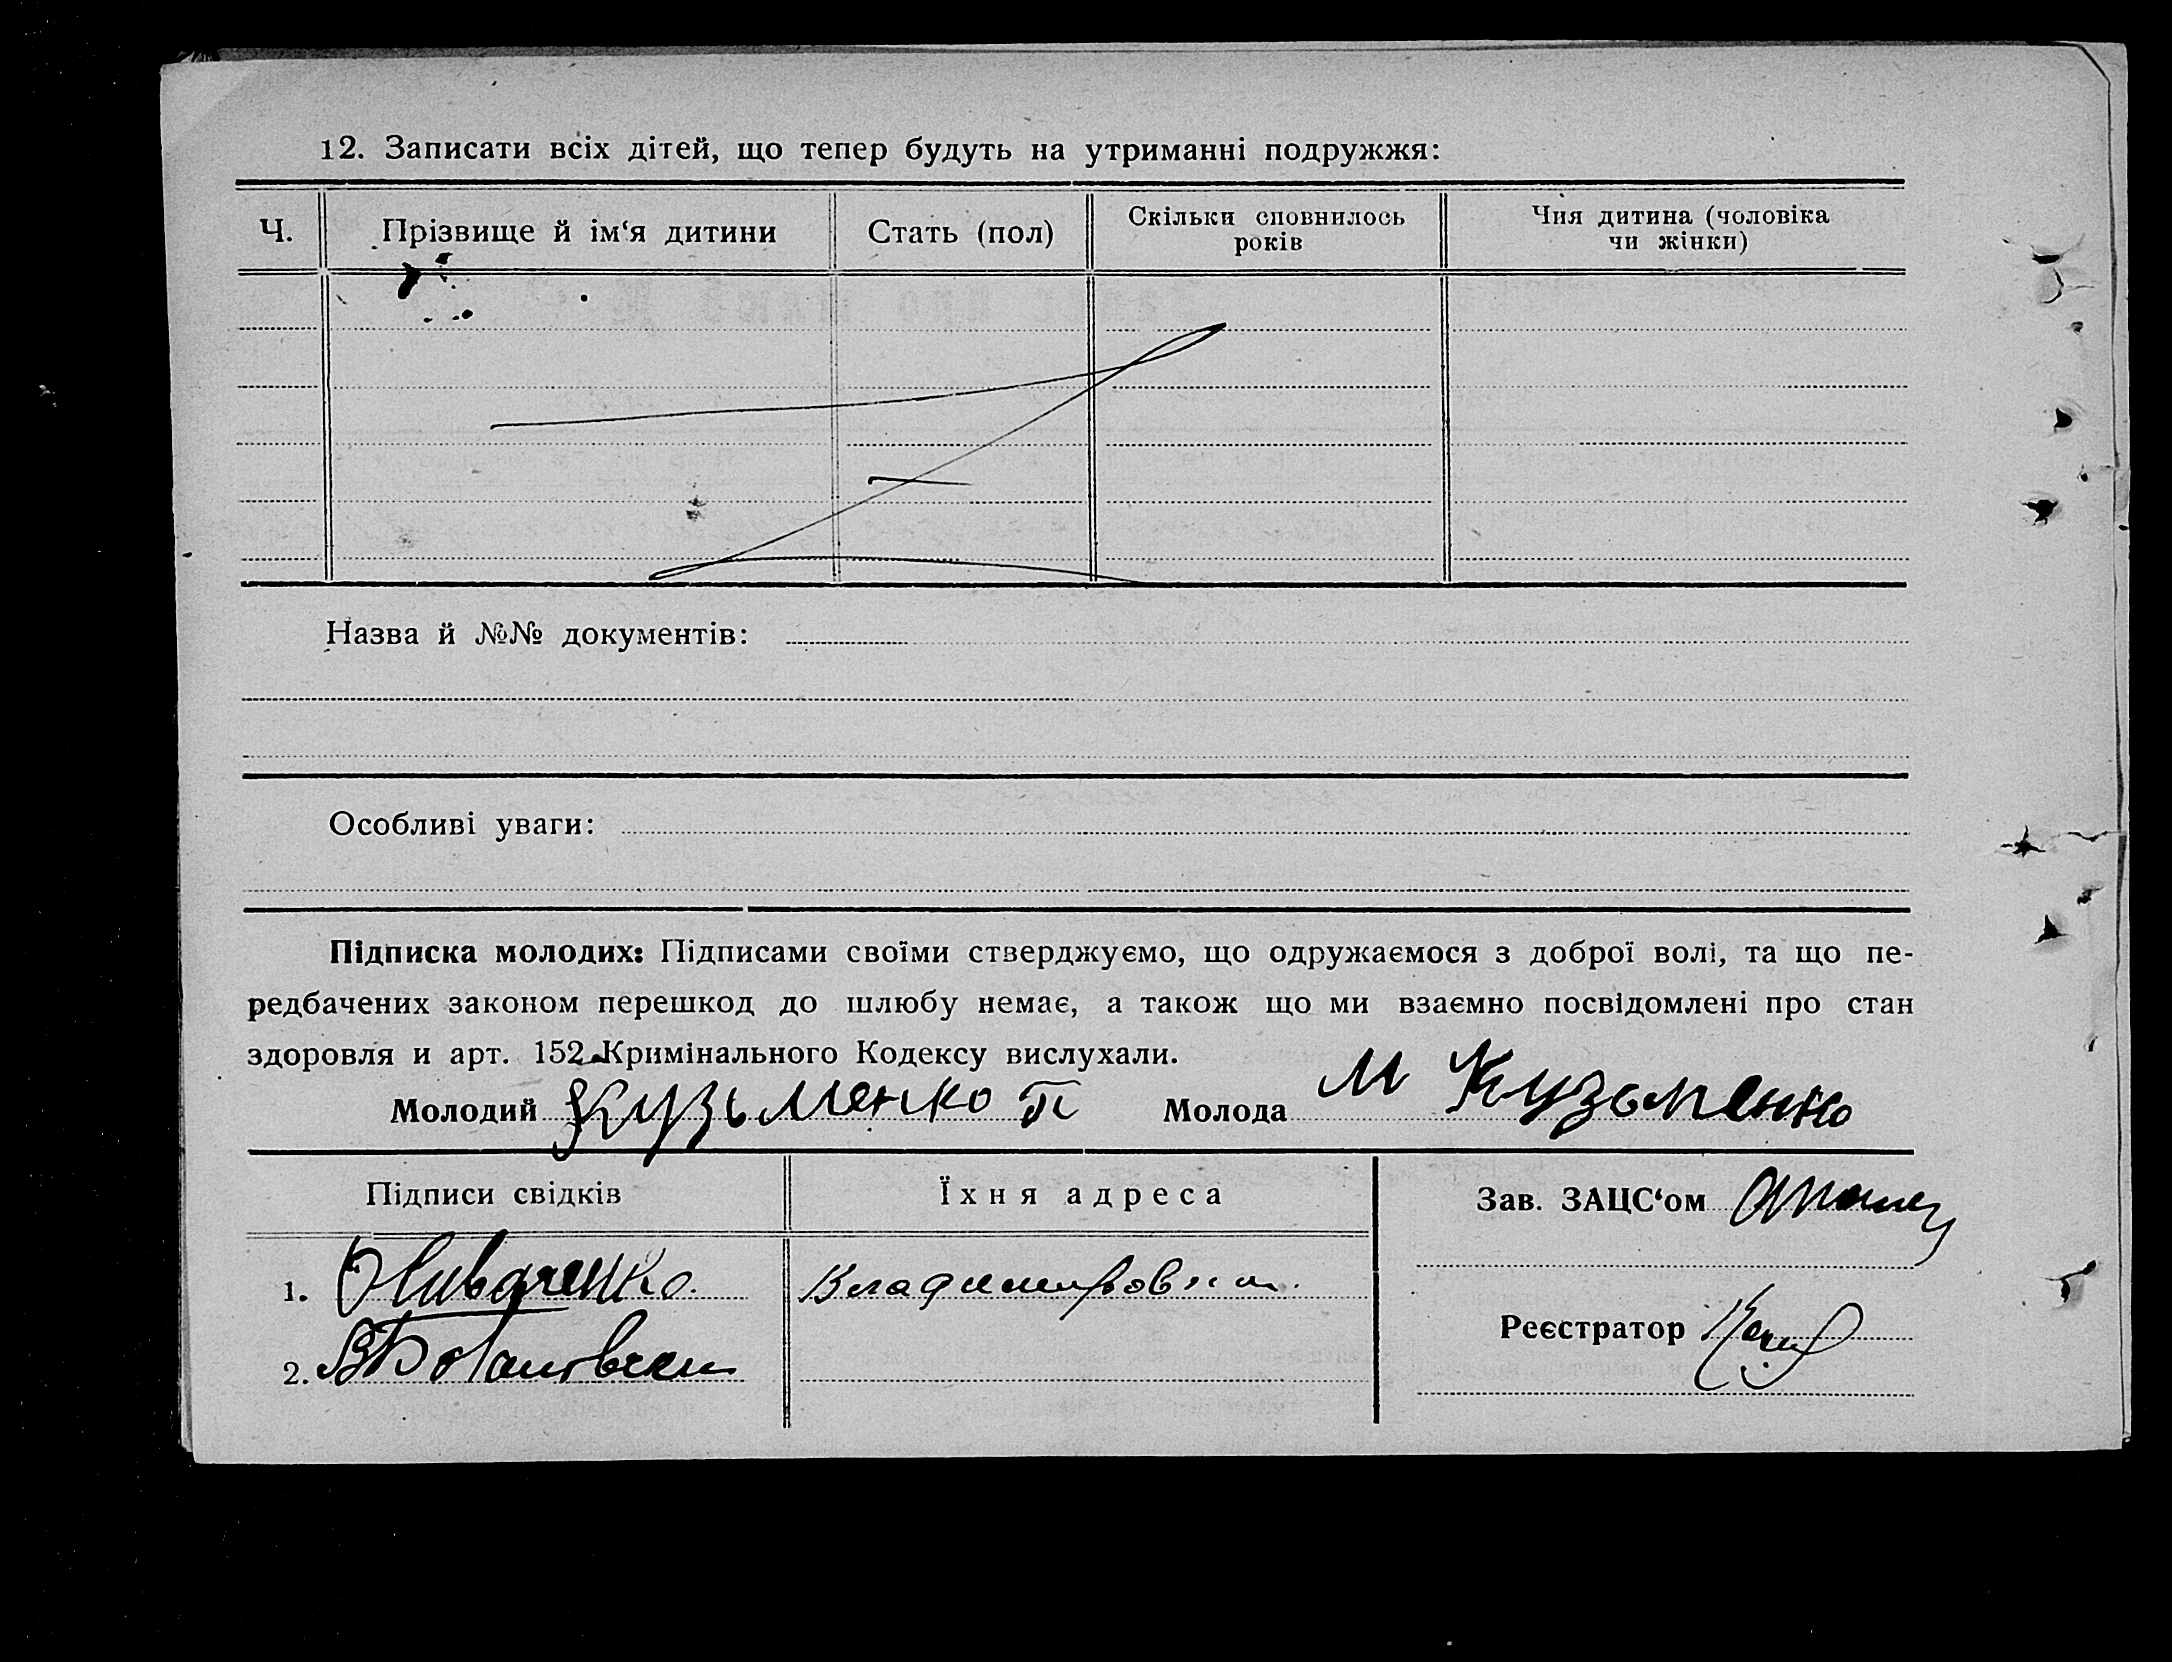 12. Записати всіх дітей, що тепер будуть на утриманні подружжя:
Ч.
Прізвище й ім‘я дитини
Стать (пол)
Скільки сповнилось
років
Чия дитина (чоловіка
чи жінки)
Назва й №№ документів:
Особливі уваги:
Підписка молодих: Підписами своїми стверджуємо, що одружаємося з доброї волі, та що пе-
редбачених законом перешкод до шлюбу немає, а також що ми взаємно посвідомлені про стан
здоровля и арт. 152 Кримінального Кодексу вислухали.
Молодий Кузьменко П Молода М Кузьменко
Підписи свідків
Їхня адреса
Зав. ЗАЦС‘ом
1.
2.
Реєстратор